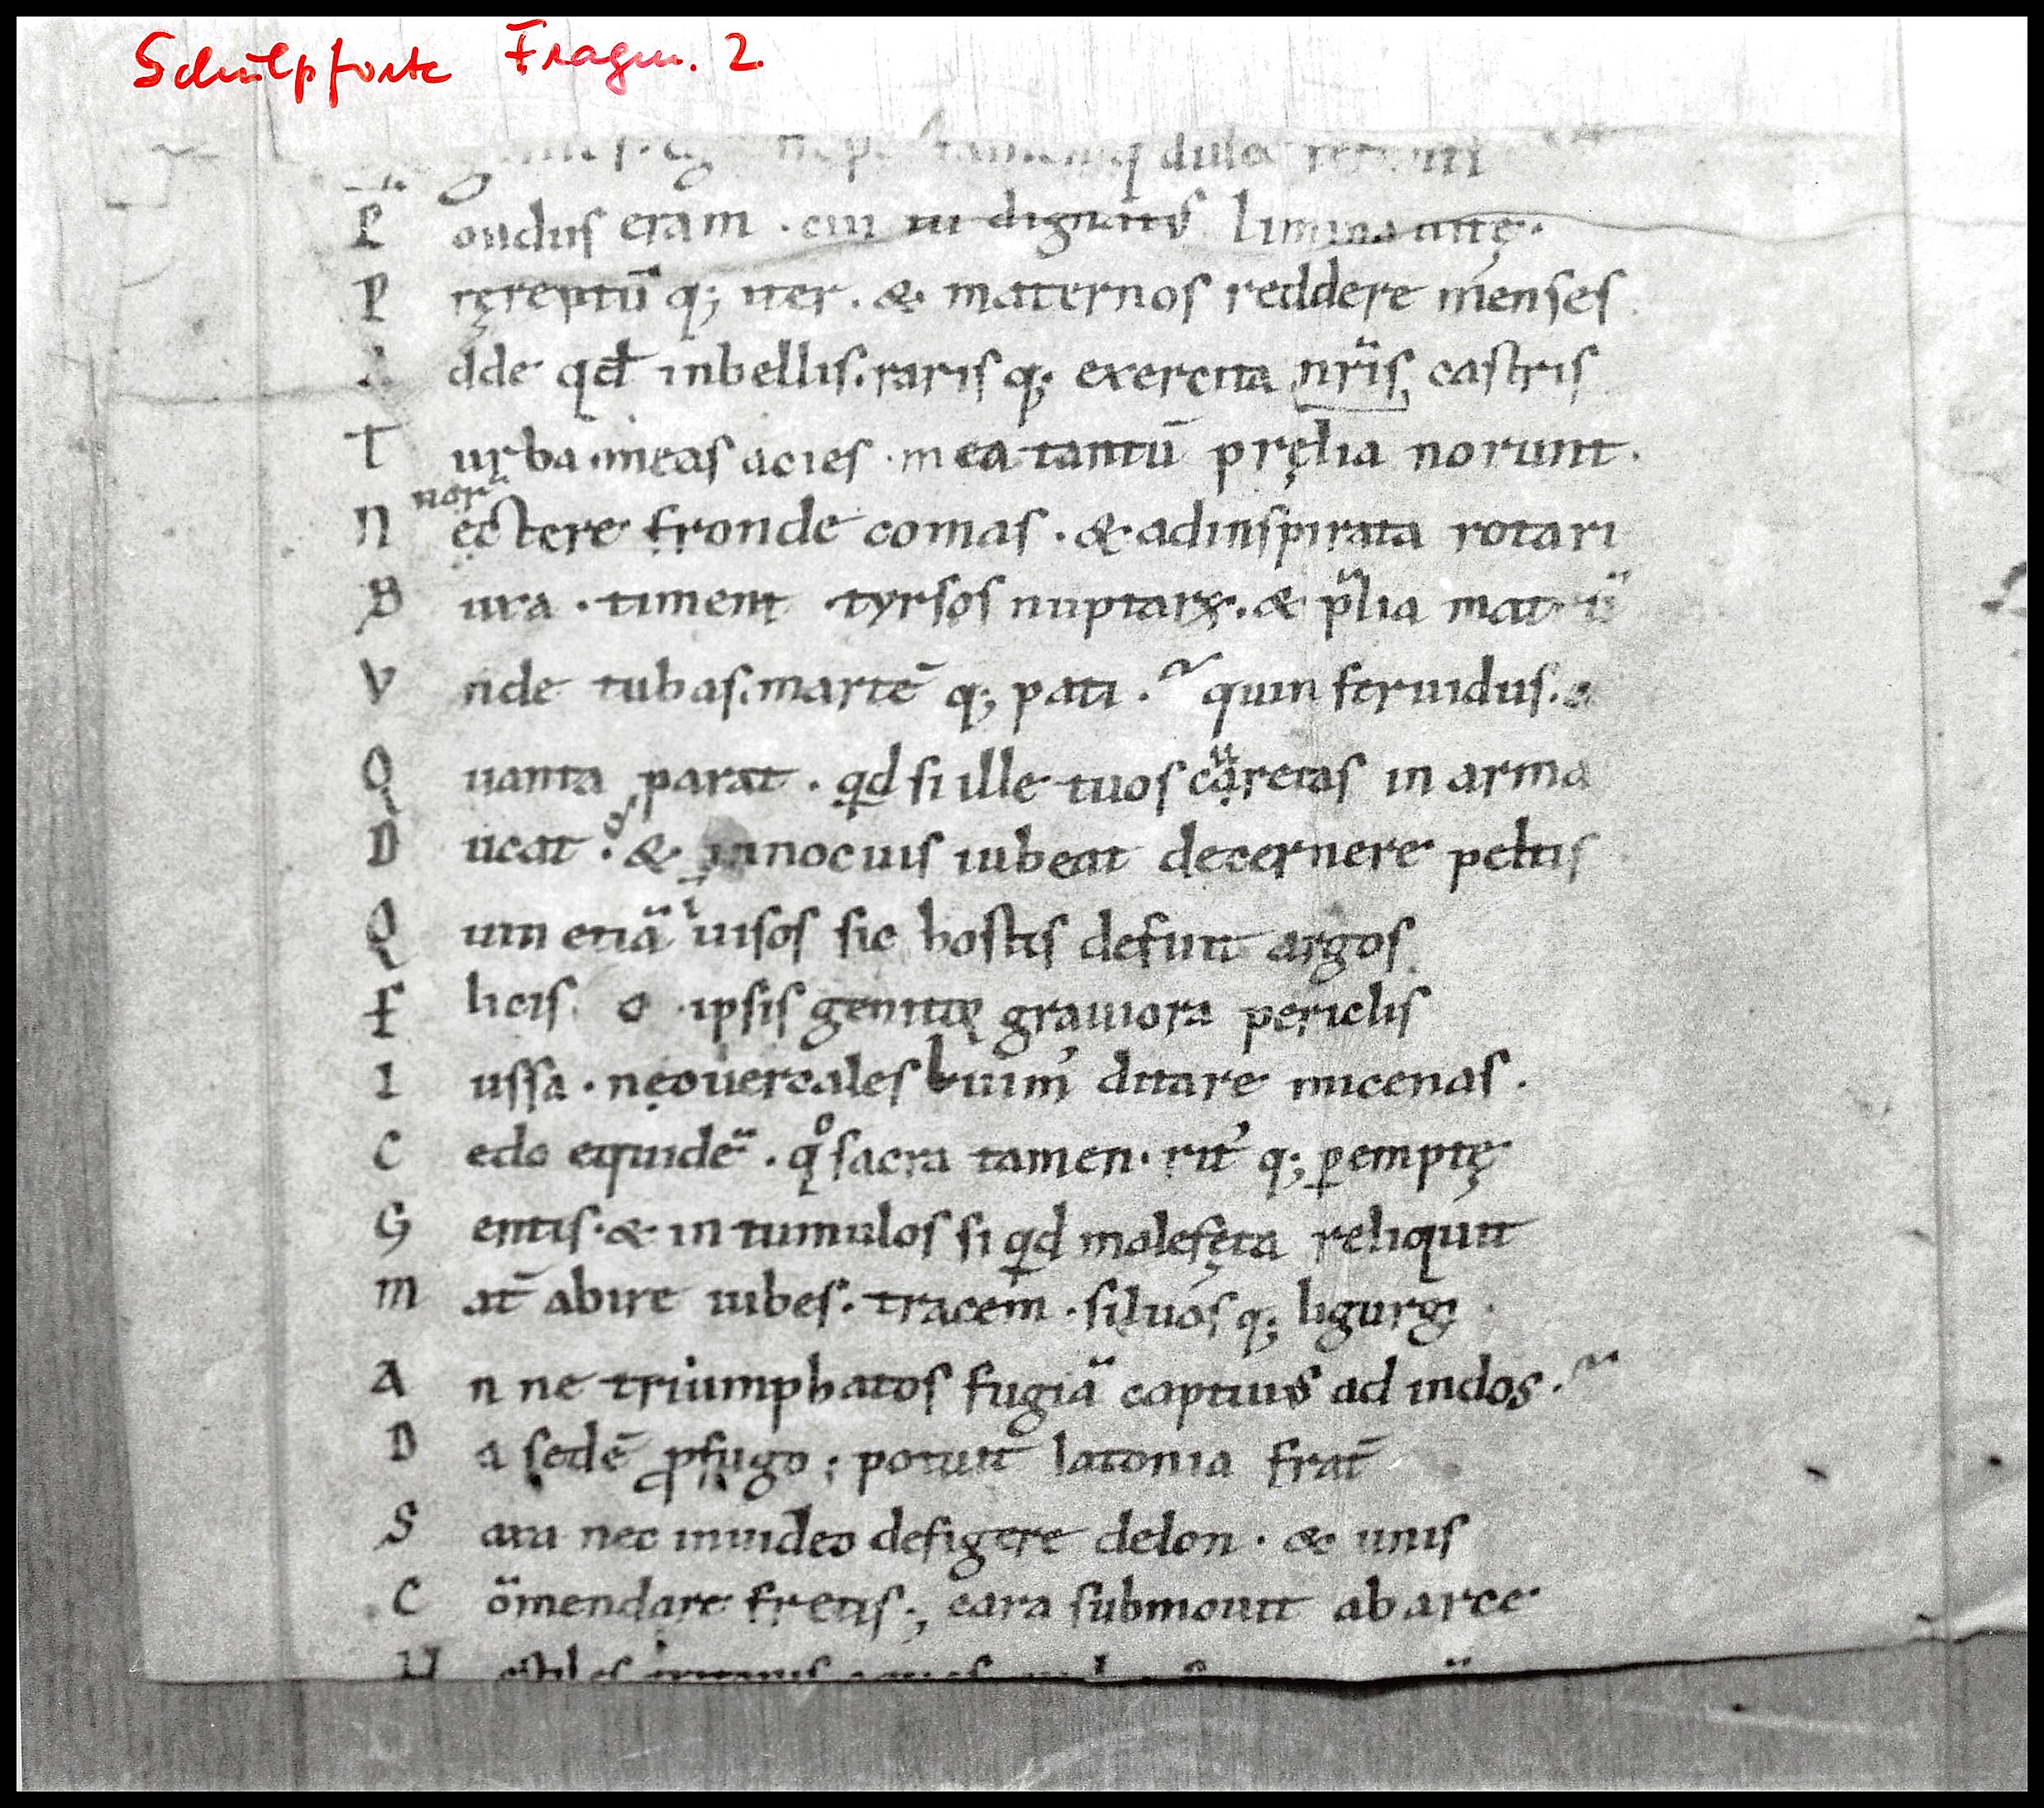 Schulpforte Fragm. 2
dulce
P ondus eram . cui tu dignatus limina uitę.
P ręreptū q; iter . & maternos reddere menses
A dde qđ inbellis. raris q; exercita nr̄is, castris
T urba meas acies . mea tantū pręlia norunt.
N ectere fronde comas . & adinspirata rotari
B uxa . timent tyrsos nuptarꝝ. & p̄lia matrū
V nde tubas. martē q; pati . quin feruidus.
Q uanta parat . qd si ille tuos curetas in arma
D ucat . & innocuis iubeat decernere peltis
Q uin etiā īuisos sic hostis defuit argos
F licis o ipsis genitoꝝ grauiora periclis
I ussa . nęouercales luuim̄ ditare micenas .
C edo equidē . qͦ sacra tamen . rit' q; ꝑemptę
G entis . & in tumulos si qd malefęta reliquit
M at̄ abire iubes . tracem . siluas q; ligurgi .
A n ne triumphatos fugiā captiuus ad indos .
D a sedē ꝓfugo ; potuit latonia frat̄
S axa nec inuideo defigere delon . & unis
C ōmendare fretis ; cara submouit ab arce
H